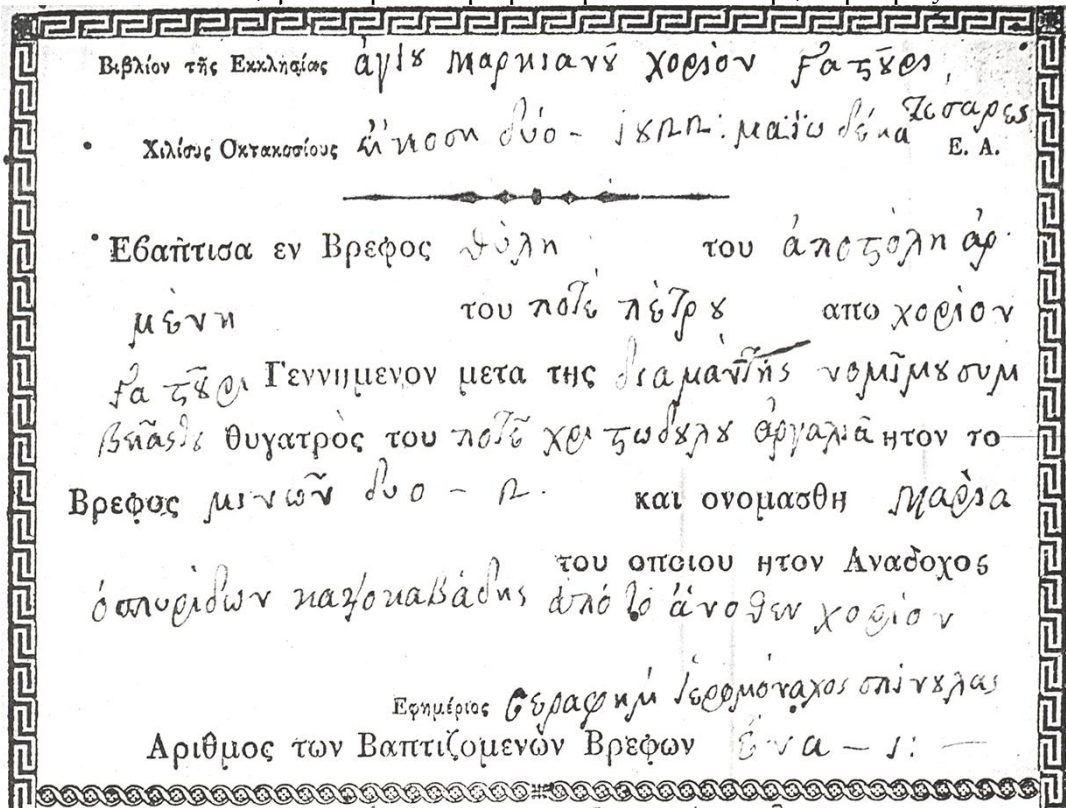 Βιβλίον τῆς Εκκλησίας ἁγίȣ μαρκιανȣ͂ χορίον
Χιλίσυς Οκτακοσίους ἤκοση δύο - μαΐω δέκα τέσαρες
Ε. Α.
Εβαπτισα εν Βρεφος θύλη του ἀποστόλη ἀρ
μένη του ποτὲ πέτρȣ απω χορίον
Γεννημενον μετα της διαμάντης νομίμȣ συμ
θυγατρὸς του ποτὲ χριστωδȣ́λȣ ἀργαλιᾶ ητον το
Βρεφος μινῶν δυο - 2. και ονομασθη Μαρία
του οποιου ητον Αναδοχος
ὁ σπυρίδων κατζοκαβάδης ἀπὸ τὸ ἄνοθεν χορίον
Εφημέριος Σεραφὴμ ἱερομόναχος σπίνȣλας
Αριθμος των Βαπτιζομενων Βρεφων ἕνα - 1: -